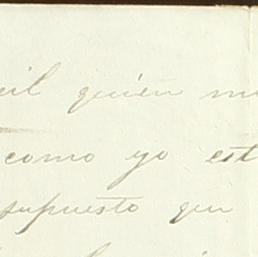 quién
como yo est
supuesto que